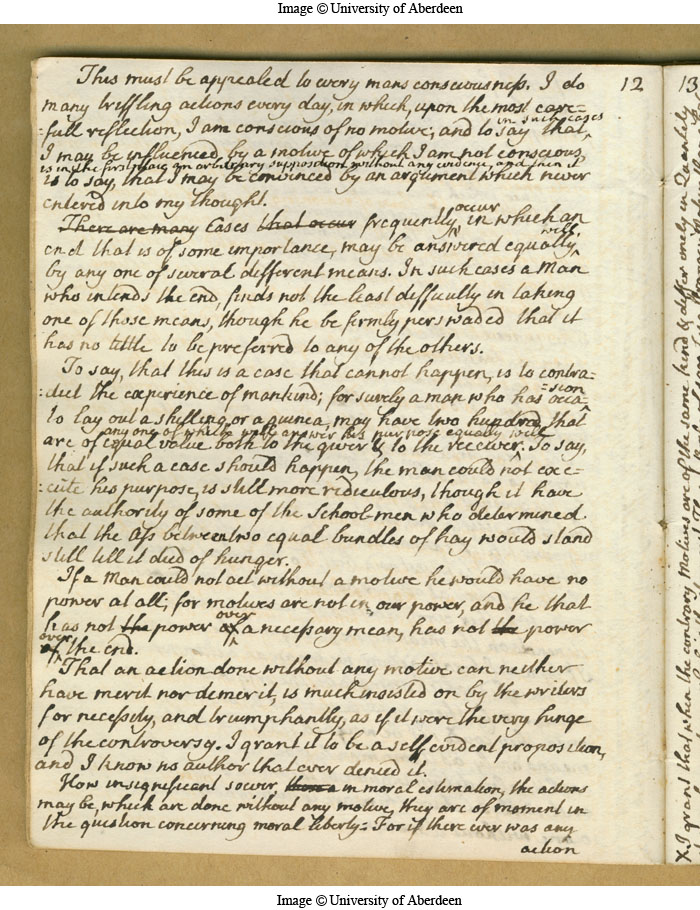 Image © University of Aberdeen
12
13
This must be appealed to every mans consciousness. I do
many triffling actions every day, in which, upon the most care-
-full reflection, I am conscious of no motive; and to say that
in such cases
I may be influenced by a motive of which I am not conscious,
is in the first place an arbitrary supposition without any evidence, and then it
is to say, that I may be convinced by an argument which never
entered into my thought.
There are many Cases that occur frequently occur, in which an
end that is of some importance, may be answered equally well,
by any one of several different means. In such cases a Man
who intends the end, finds not the least difficulty in taking
one of those means, though he be firmly perswaded that it
has no tittle to be preferred to any of the others.
To say, that this is a case that cannot happen, is to contra-
-dict the experience of mankind; for surely a man who has occa-
-sion
to lay out a shilling, or a guinea, may have two hundred that
any one of which will answer his purpose equally well
are of equal value both to the giver & to the receiver. To say,
that if such a case should happen, the man could not exe-
-cute his purpose, is still more rediculous, though it have
the authority of some of the School-men who determined
that the Ass between two equal bundles of hay would stand
still till it died of hunger.
If a Man could not act without a motive he would have no
power at all; for motives are not in our power, and he that
has not the power of over a necessary mean, has not the power
of over the end.
That an action done without any motive can neither
have merit nor demerit, is much insisted on by the writers
for necessity, and triumphantly, as if it were the very hinge
of the controversy. I grant it to be a self evident proposition,
and I know no author that ever denied it.
How insignificant soever, in moral estimation, the actions
may be, which are done without any motive, they are of moment in
the question concerning moral liberty: For if there ever was any
action
X I grant that when the contrary Motives are of the same kind & differ onely in Quantity
Image © University of Aberdeen